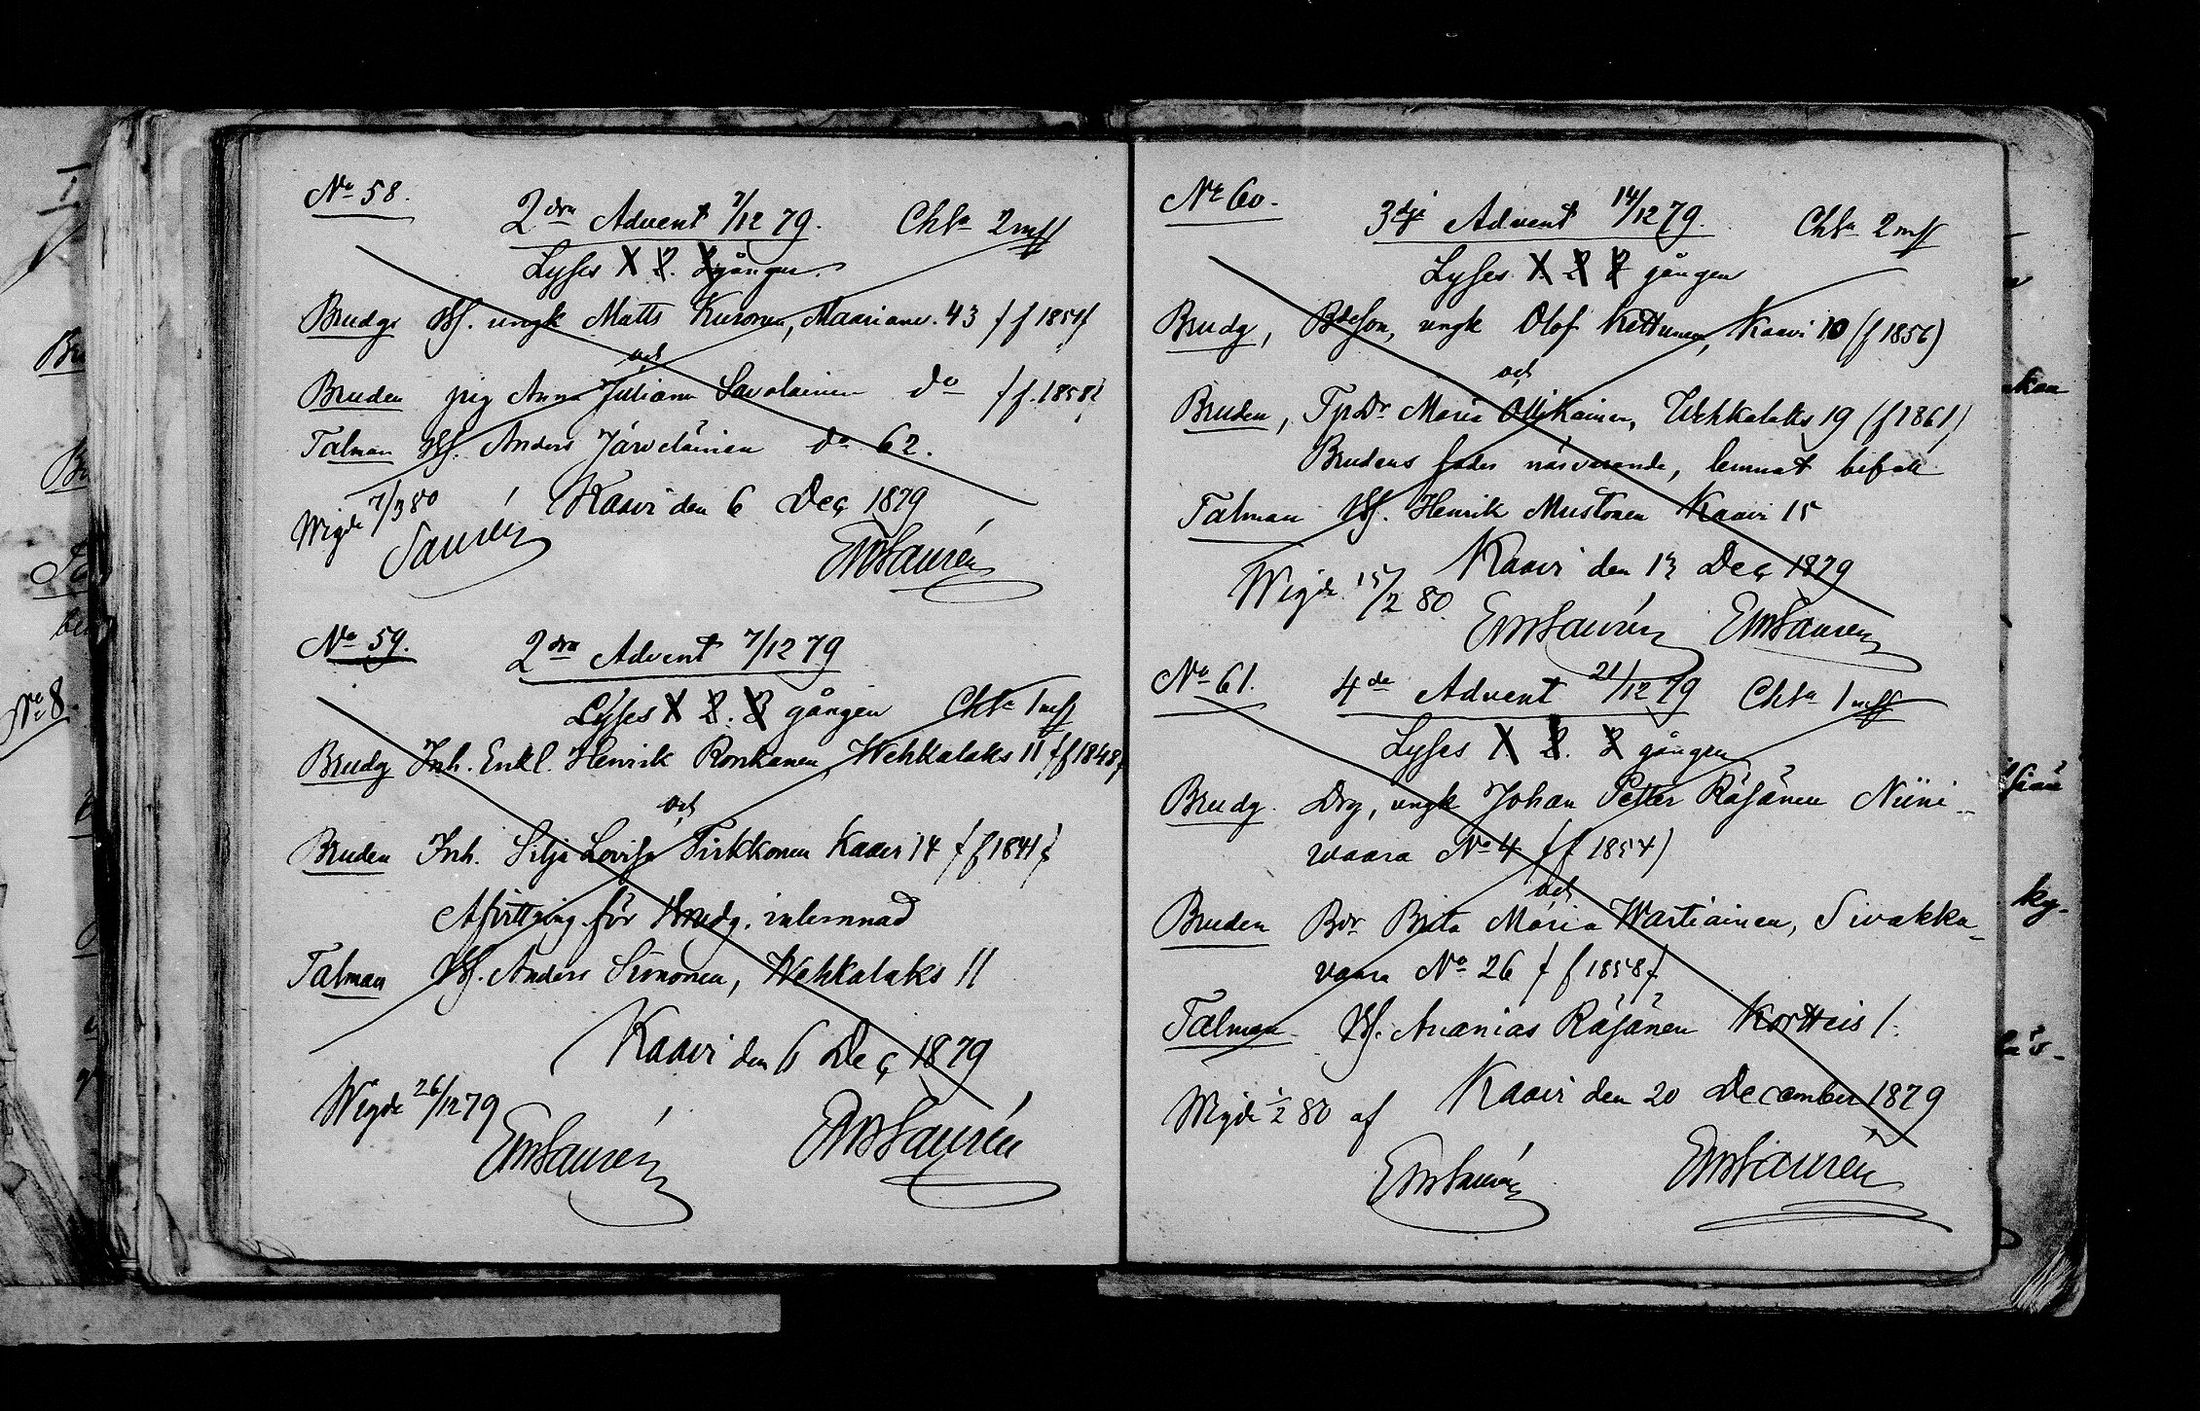 No 58.
2dra Advent 7/12 79. Chta 2 mff
Lyses 1. 2. 3 gången.
Brudg. ungk Matts Kuronen, Maarianv. 43 (f 1854)
och
Bruden pig Anna Juliana Savolainen do (f. 1858)
Talman Anders Järveläinen do 62.
Kaavi den 6 Dec 1879
Wigde 7/3 80
Saurén EmSaurén
No 59.
2dra Advent 7/12 79
Lyses 1. 2. 3 gången Chta 1 mff
Brudg Inh. Enkl. Henrik Ronkanen, Wehkalaks 11 (f 1848)
och
Bruden Inh. Silja Lovisa Tirkkonen Kaavi 14 (f 1841)
Afvittring för Brudg. inlemnad
Talman Anders Simonen, Wehkalaks 11
Kaavi den 6 Dec 1879
Wigde 26/12 79
EmSaurén EmSaurén
No 60.
3dje Advent 14/12 79. Chta 2 mff
Lyses 1. 2 3 gången
Brudg, Bdeson, ungk Olof Kettunen, Kaavi 10 (f 1856)
och
Bruden, TpDr Maria Ollikainen, Wehkalaks 19 (f 1861)
Brudens fader närvarande, lemnat bifall
Talman Henrik Mustonen Kaavi 15
Kaavi den 13 Dec 1879
Wigde 15/2 80.
EmSaurén EmSaurén
No 61.
4de Advent 21/12 79 Chta 1 mff
Lyses 1 2. 3 gången
Brudg. Drg, ungk Johan Petter Räsänen Niini-
vaara No 4 (f 1854)
och
Bruden Bdr Brita Maria Wartiainen, Sivakka-
vaara No 26 (f 1858)
Talman Ananias Räsänen Kortteis 1.
Kaavi den 20 December 1879
Wigde 1/2 80 af
EmSaurén EmSaurén
No 8.